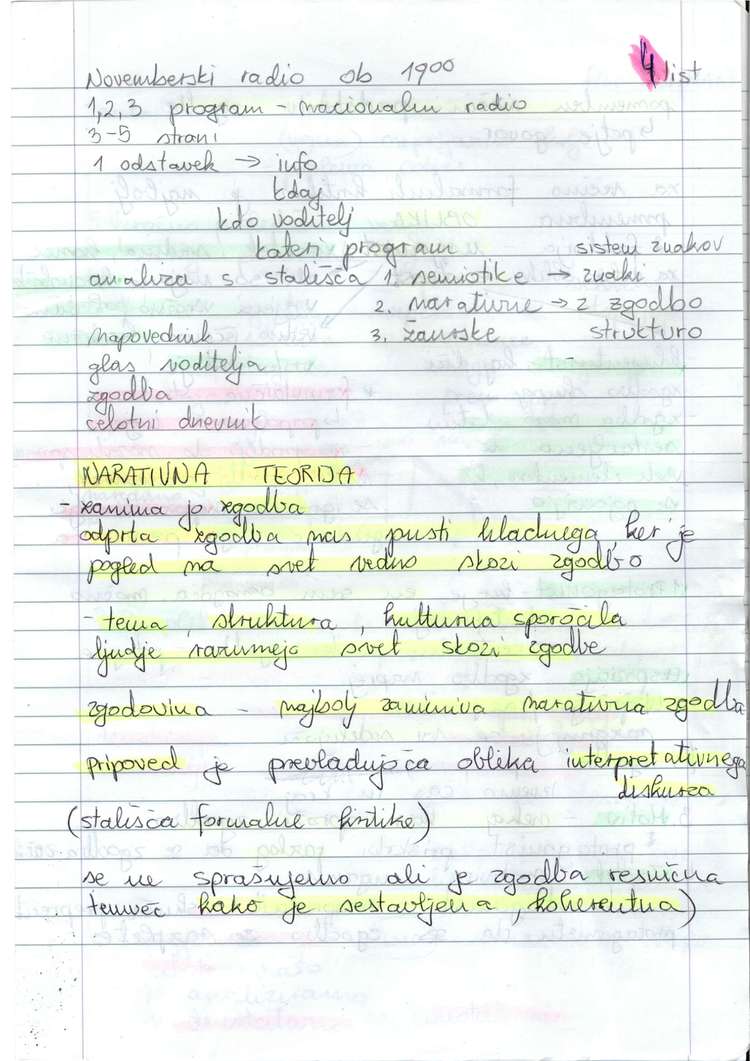 4 list
Novemberski radio ob 1900
1,2,3 program - nacionalni radio
3-5 strani
1 odstavek → info
kdaj
kdo voditelj
kateri program sistem znakov
analiza s stališča 1. semiotike → znaki
2. narativne → z zgodbo
napovednik 3. žanrske strukturo
glas voditelja -
zgodba
celotni dnevnik
NARATIVNA TEORIJA
- zanima jo zgodba
odprta zgodba nas pusti hladnega, ker je
pogled na svet vedno skozi zgodbo
- tema, struktura, kulturna sporočila
ljudje razumejo svet skozi zgodbe
zgodovina - najbolj zanimiva narativna zgodba
pripoved je prevladujoča oblika interpretativnega
diskurza
(stališča formalne kritike)
se ne sprašujemo ali je zgodba resnična
temveč kako je sestavljena, koherentna)